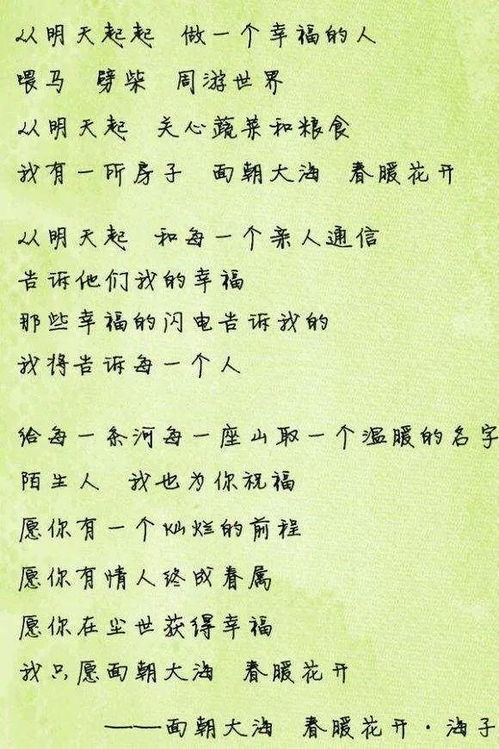 从明天起起 做一个幸福的人
喂马 劈柴 周游世界
从明天起 关心蔬菜和粮食
我有一所房子 面朝大海 春暖花开
从明天起 和每一个亲人通信
告诉他们我的幸福
那些幸福的闪电告诉我的
我将告诉每一个人
给每一条河每一座山取一个温暖的名字
陌生人 我也为你祝福
愿你有一个灿烂的前程
愿你有情人终成眷属
愿你在尘世获得幸福
我只愿面朝大海 春暖花开
——面朝大海 春暖花开·海子